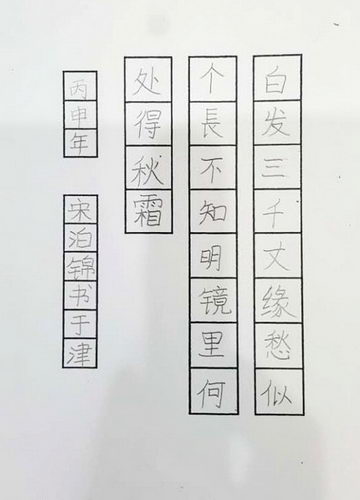 白发三千丈缘愁似
个長不知明镜里何
处得秋霜
丙申年
宋泊锦书于津